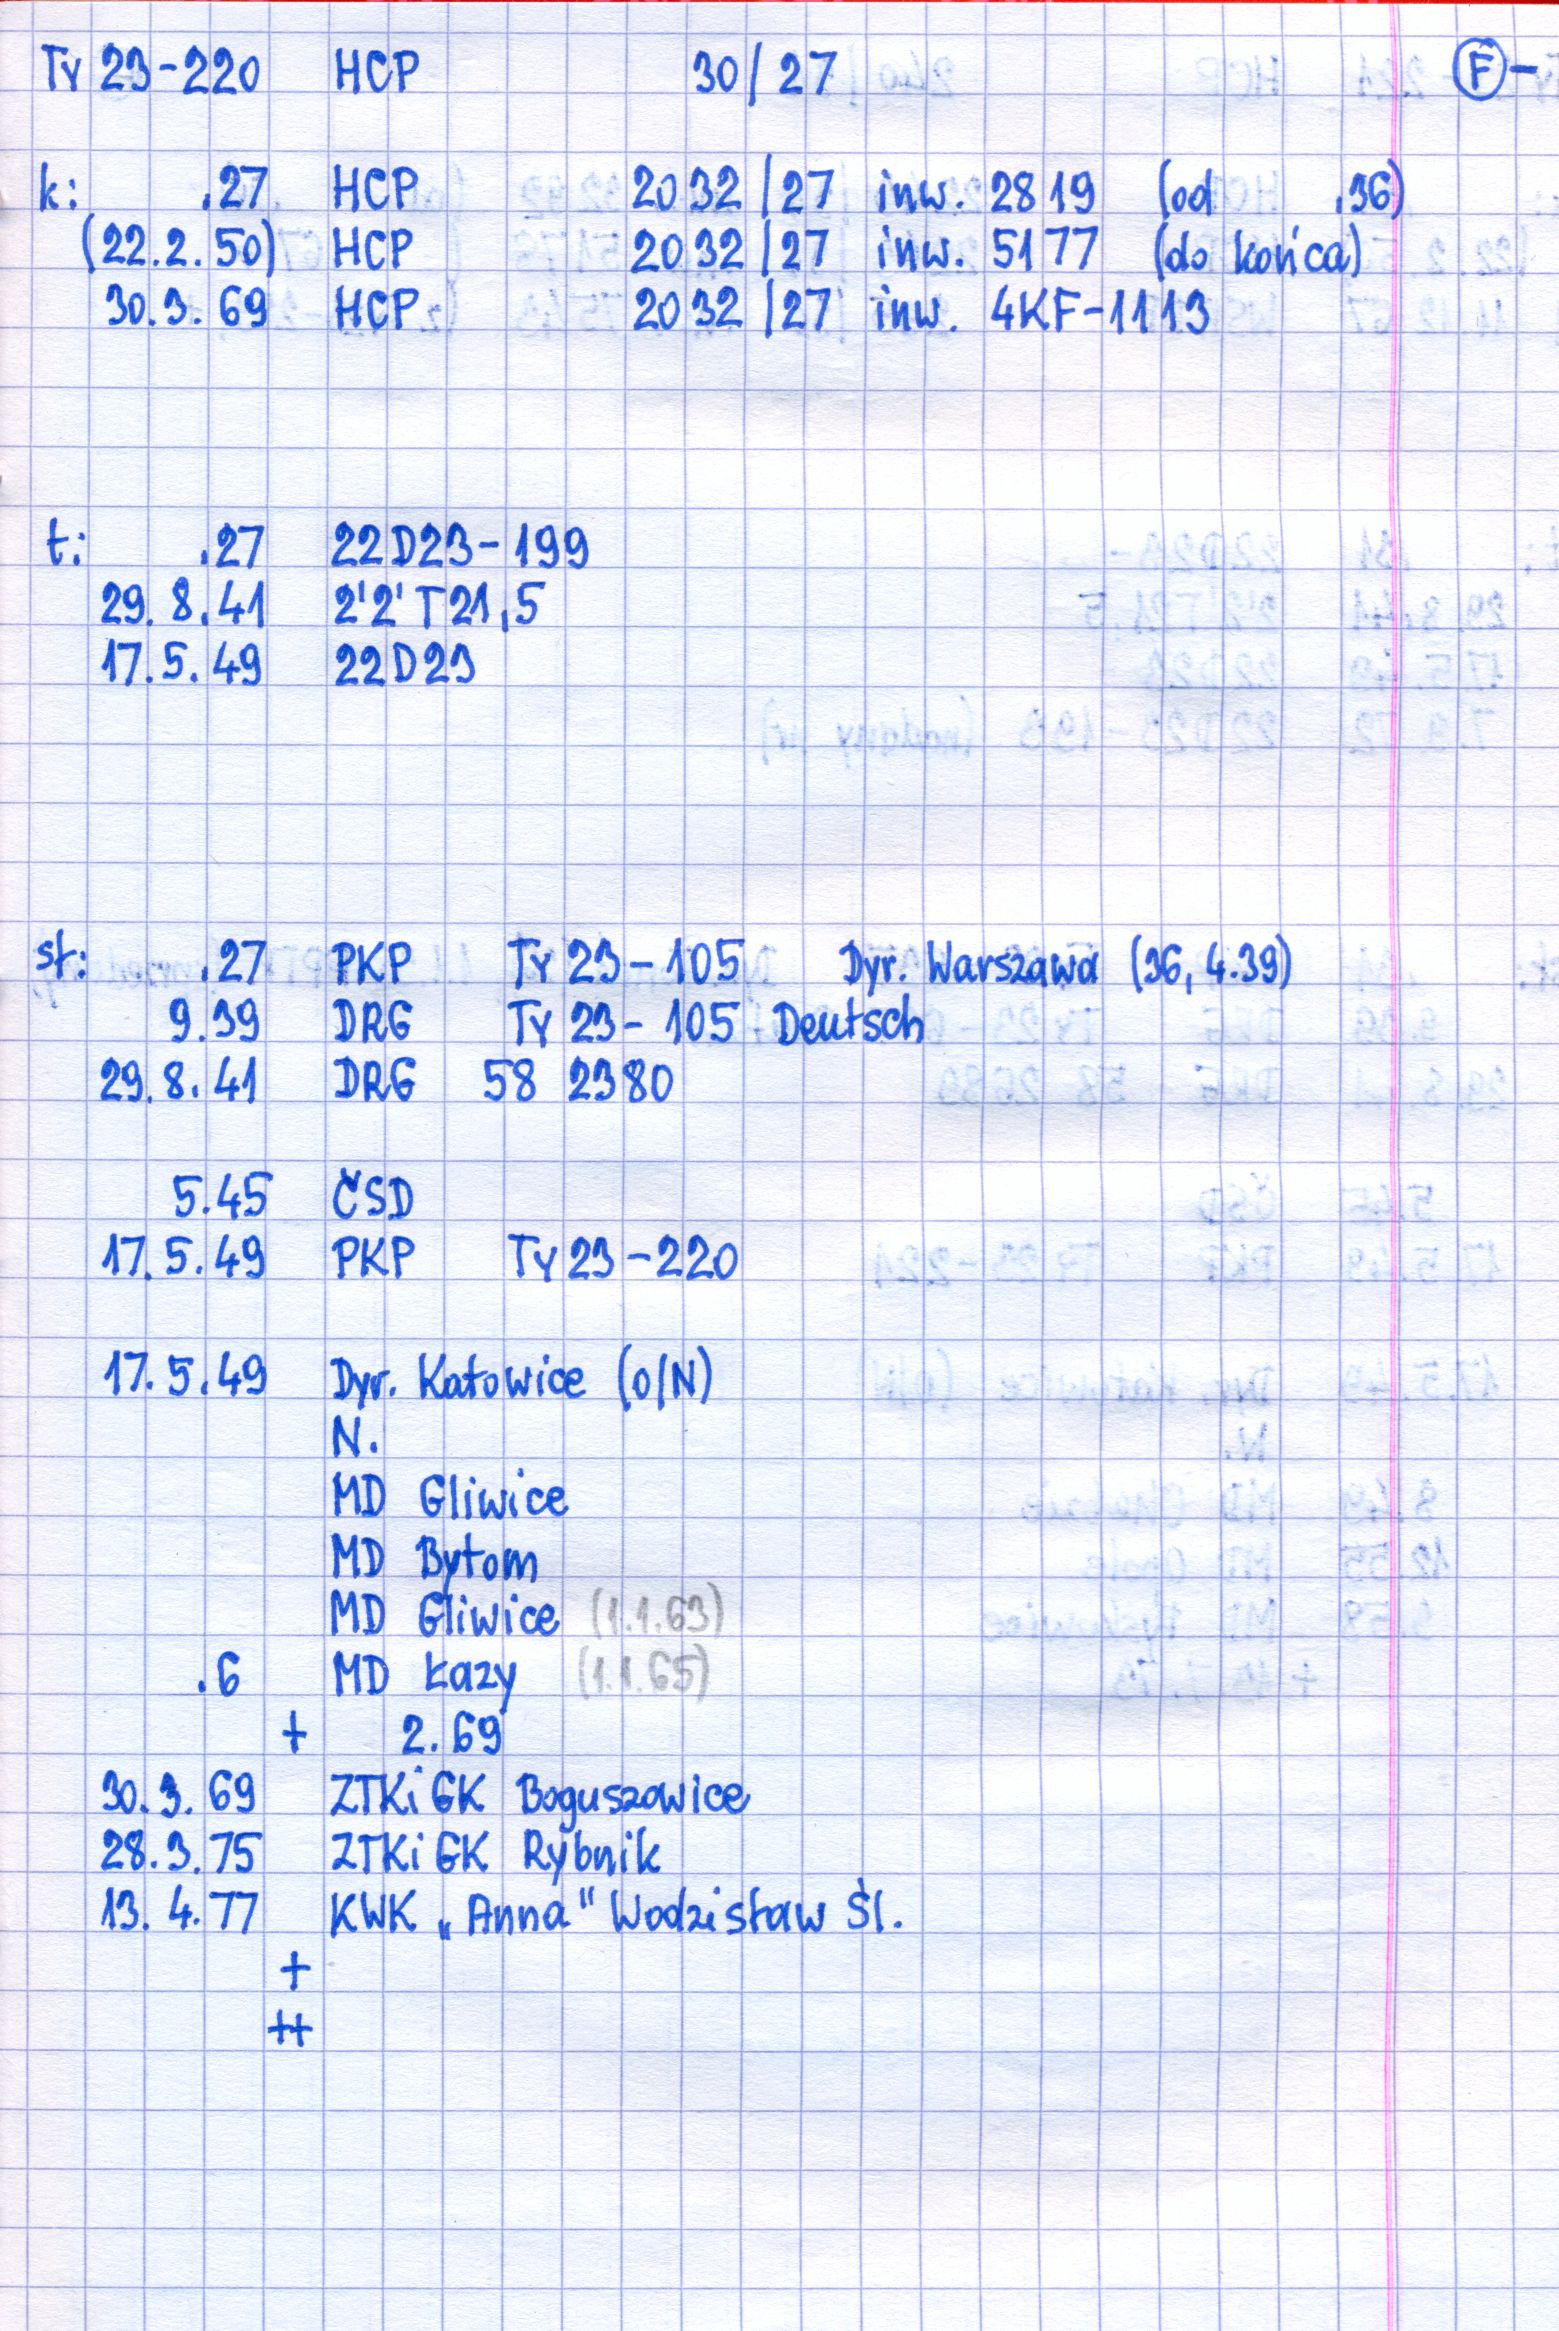 Ty 23-220 HCP 30/27 F-
k: .27 HCP 2032/27 inw. 2819 (od .36)
(22.2.50) HCP 2032/27 inw. 5177 (do końca)
30.3.69 HCP 2032/27 inw. 4KF-1113
t: .27 22D23-199
29.8.41 2'2'T21,5
17.5.49 22D23
st: .27 PKP Ty 23-105 Dyr. Warszawa (36, 4.39)
9.39 DRG Ty 23-105 Deutsch
29.8.41 DRG 58 2380
5.45 ČSD
17.5.49 PKP Ty 23-220
17.5.49 Dyr. Katowice (o/N)
N.
MD Gliwice
MD Bytom
MD Gliwice (1.1.63)
.6 MD Łazy (1.1.65)
+ 2.69
30.3.69 ZTKiGK Boguszowice
28.3.75 ZTKiGK Rybnik
13.4.77 KWK „Anna" Wodzisław Śl.
+
++